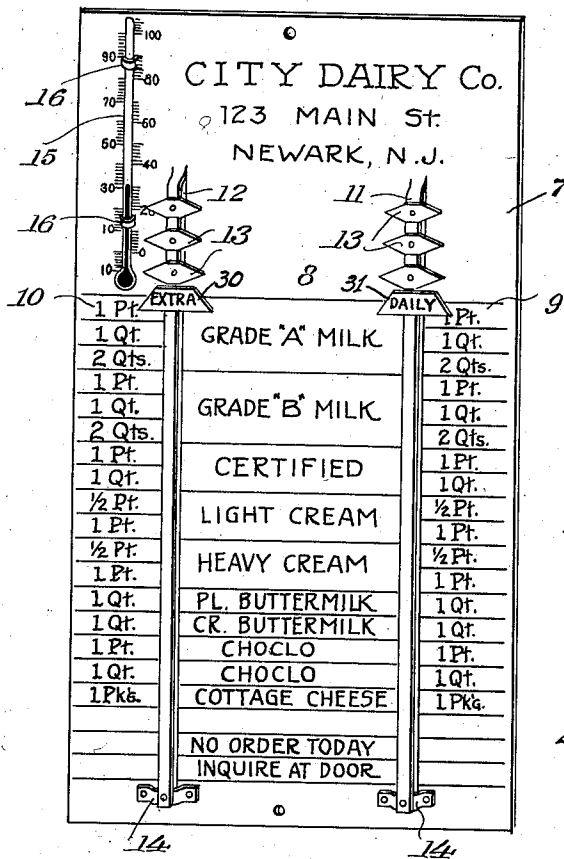 100
90
80
70
60
50
40
30
20
10
0
10
CITY DAIRY Co.
123 MAIN St.
NEWARK, N.J.
16
15
16
12
11
7
13
13
8
30
31
10
9
EXTRA
DAILY
1 Pt. GRADE "A" MILK 1 Pt.
1 Qt. 1 Qt.
2 Qts. 2 Qts.
1 Pt. GRADE "B" MILK 1 Pt.
1 Qt. 1 Qt.
2 Qts. 2 Qts.
1 Pt. CERTIFIED 1 Pt.
1 Qt. 1 Qt.
½ Pt. LIGHT CREAM ½ Pt.
1 Pt. 1 Pt.
½ Pt. HEAVY CREAM ½ Pt.
1 Pt. 1 Pt.
1 Qt. PL. BUTTERMILK 1 Qt.
1 Qt. CR. BUTTERMILK 1 Qt.
1 Pt. CHOCLO 1 Pt.
1 Qt. CHOCLO 1 Qt.
1 Pk'G. COTTAGE CHEESE 1 Pk'G.
NO ORDER TODAY
INQUIRE AT DOOR
14
14